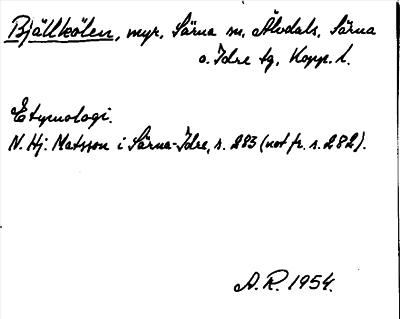 Bjällkölen, myr, Särna sn, Älvdals, Särna
o. Idre tg, Kopp. l.
Etymologi.
N. Hj. Matsson i Särna-Idre, s. 283 (not fr. s. 282).
A. R. 1954.